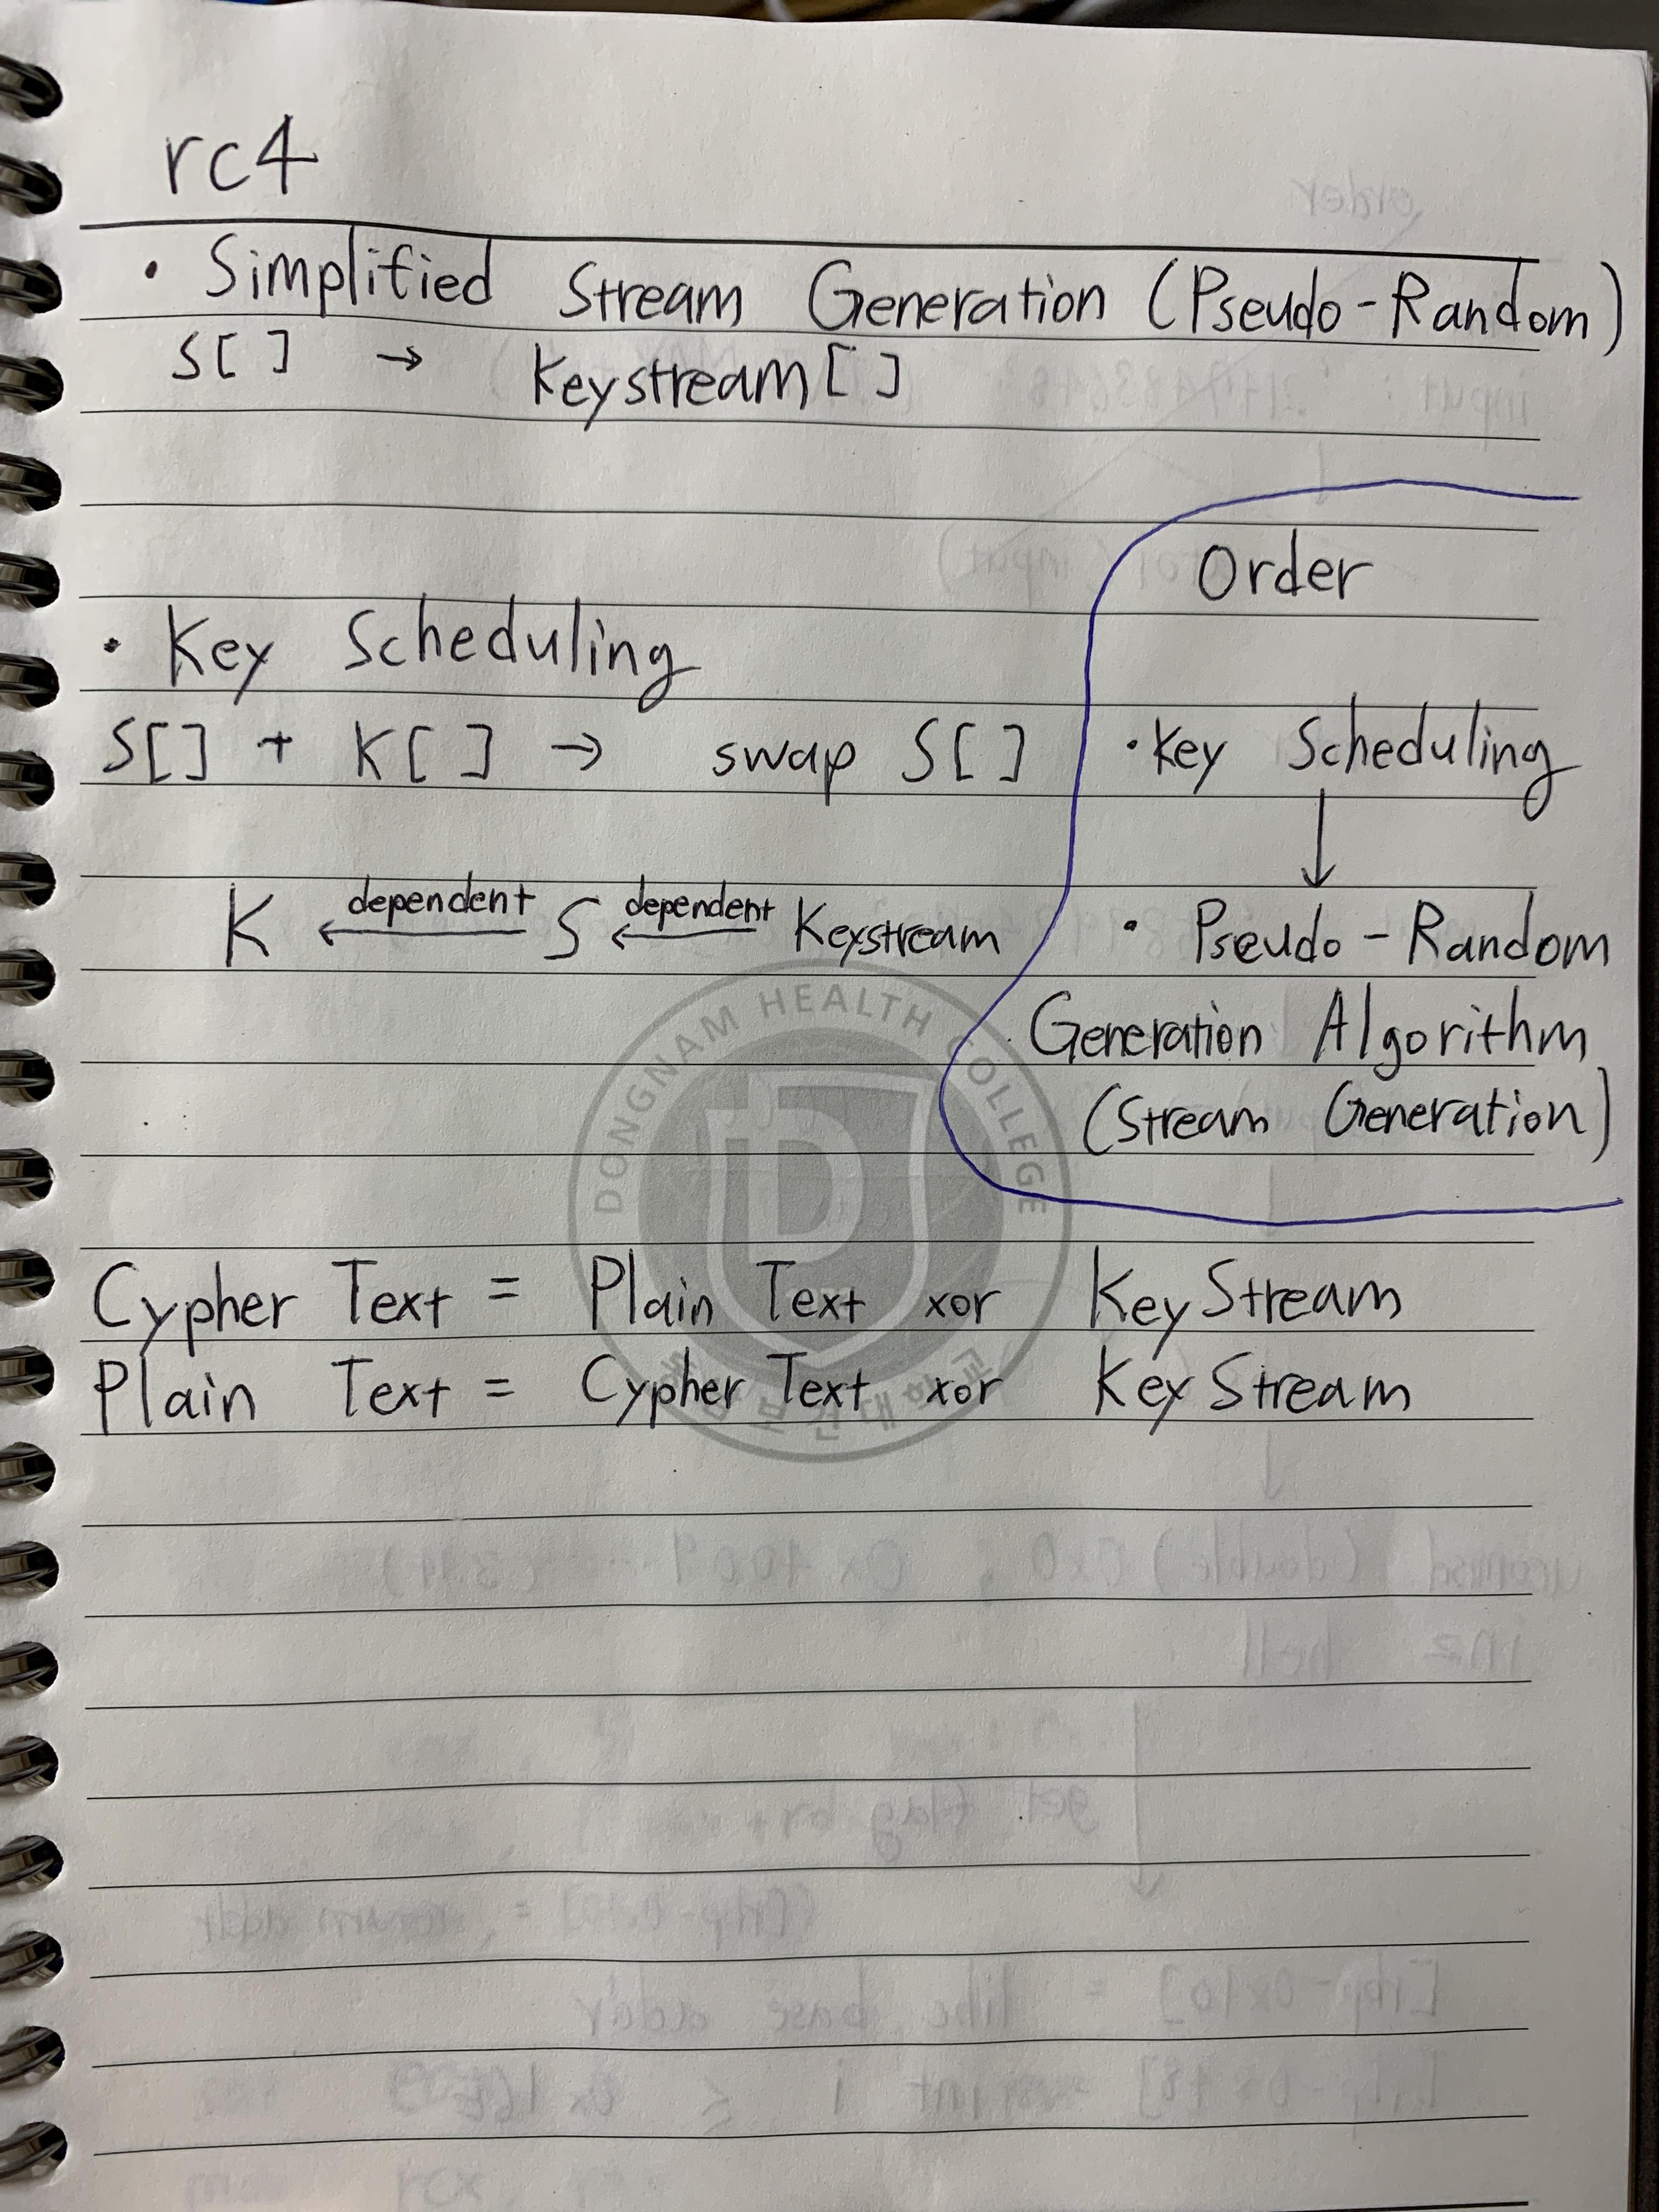 rc4
· Simplified Stream Generation (Pseudo-Random)
S[] → Keystream[]
· Key Scheduling
S[] + K[] → swap S[]
K ←dependent S ←dependent Keystream
Order
· Key Scheduling
↓
· Pseudo-Random
Generation Algorithm
(Stream Generation)
DONGNAM HEALTH COLLEGE
Cypher Text = Plain Text xor KeyStream
Plain Text = Cypher Text xor KeyStream